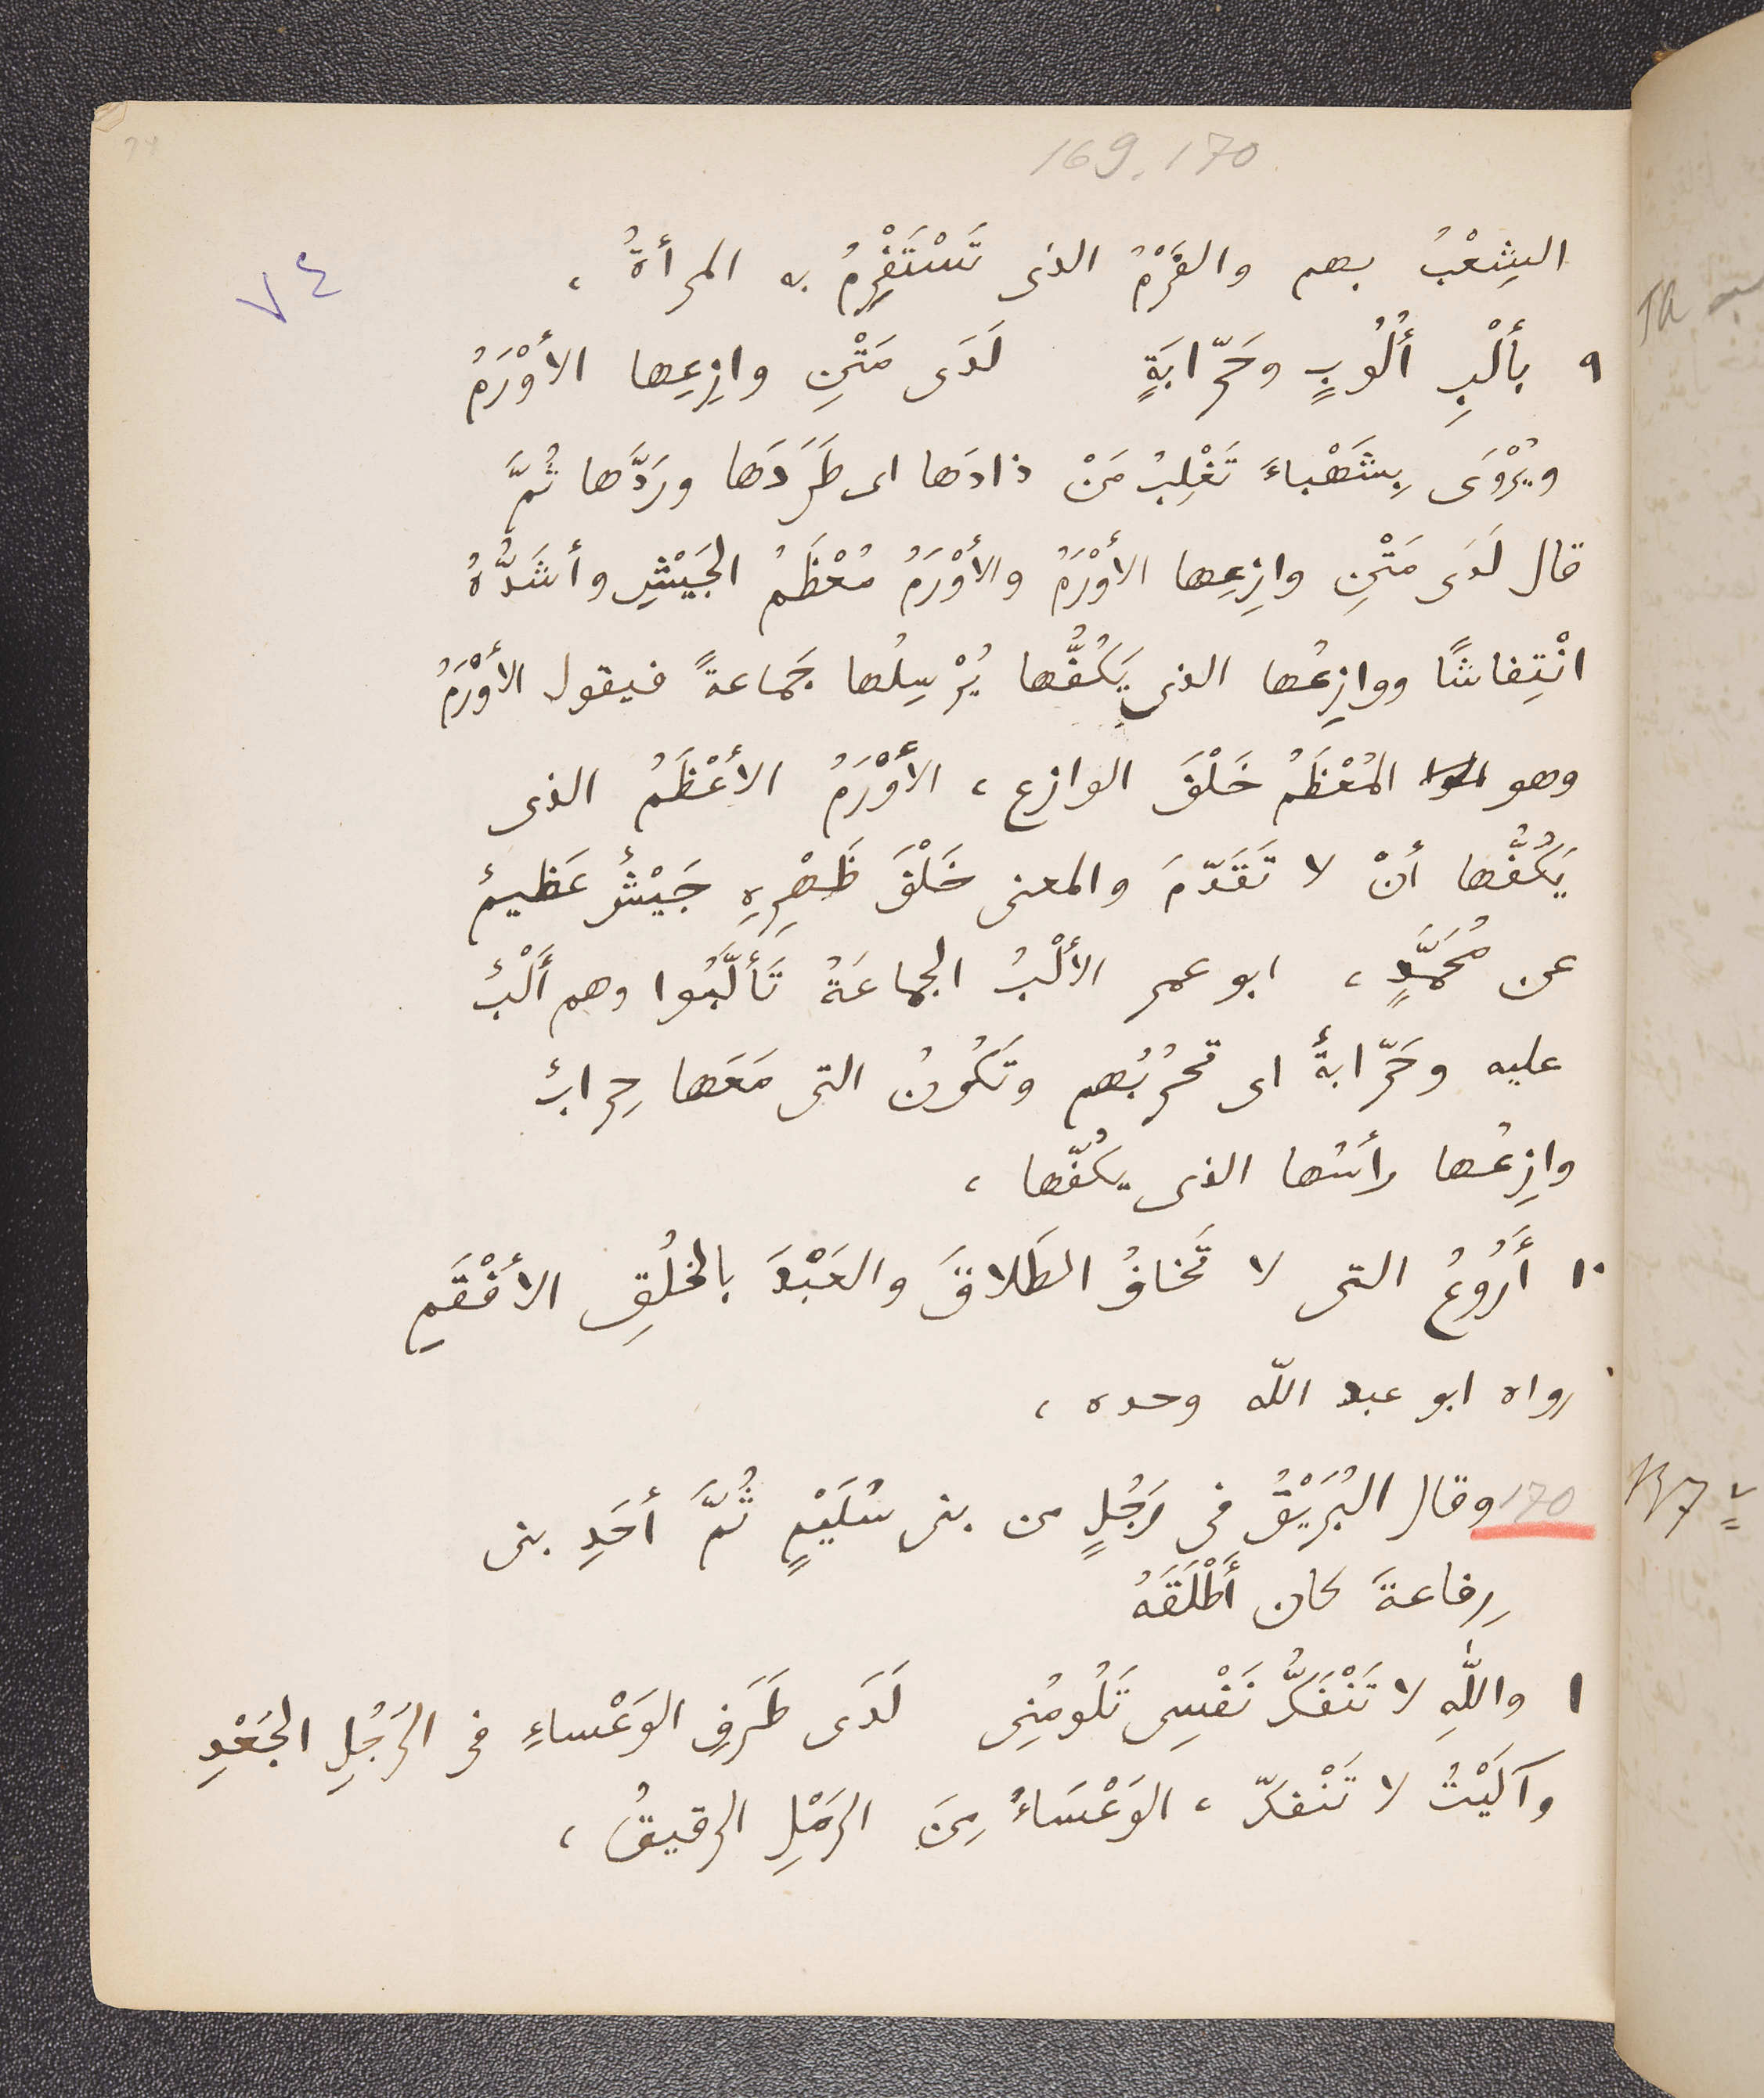 169. 170
٧٤
الشِعْبُ بهم والفَرْمُ الذى تَسْتَفْرِمُ به المرأةُ ،
٩ بأَلْبِ أُلُوبٍ وحَرّابَةٍ لَدَى مَتْنِ وازِعِها الأَوْرَمُ
ويُرْوَى بِشَهْباءَ تَغْلِبُ مَنْ ذادَها اى طَرَدَها ورَدَّها ثُمَّ
قال لَدَى مَتْنِ وازِعِها الأَوْرَمُ والأَوْرَمُ مُعْظَمُ الجَيْشِ وأشَدُّهُ
انْتِفاشًا ووازِعُها الذى يَكُفُّها يُرْسِلُها جَماعةً فيقول الأَوْرَمُ
وهو المُعْظَمُ خَلْفَ الوازع ، الأَوْرَمُ الأَعْظَمُ الذى
يَكُفُّها أنْ لا تَقَدّمَ والمعنى خَلْفَ ظَهْرِهِ جَيْشٌ عَظيمٌ
عن مُحَمَّدٍ ، ابو عمر الأَلْبُ الجماعَةُ تَأَلَّبُوا وهم أَلْبٌ
عليه وحَرّابةٌ اى تحرُبُهم وتَكُونُ التى مَعَها حِرابٌ
وازِعُها رأسُها الذى يكُفّها ،
١٠ أَرُوعُ التى لا تَخافُ الطَلاقَ والعَبْدَ بالخُلُقِ الأَفْقَمِ
رواه ابو عبد اللّه وحده ،
170 وقال البُرَيْقُ فى رَجُلٍ من بنى سُلَيْمٍ ثُمَّ أحَدِ بنى
رِفاعةَ كان أَطْلَقَهُ
١ واللّٰهِ لا تَنْفَكُّ نَفْسِى تَلُومُنِى لَدَى طَرَفِ الوَعْساءِ فى الرَجُلِ الجَعْدِ
وآلَيْتُ لا تَنْفكّ ، الوَعْسَاءُ مِنَ الرَمْلِ الرقيقُ ،